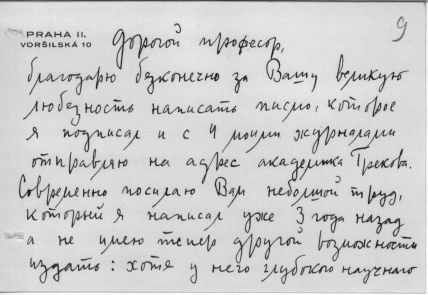 PRAHA II.
VORŠILSKÁ 10
9
Дорогой професор,
благодарю безконечно за Вашу великую
любезность написать писмо, которое
я подписал и с 4 моими журналами
отправляю на адрес академика Грекова.
Современно посилаю Вам небольшой труд,
который я написал уже 3 года назад
а не имею тепер другой возможности
издать: хотя у него глубокого научного